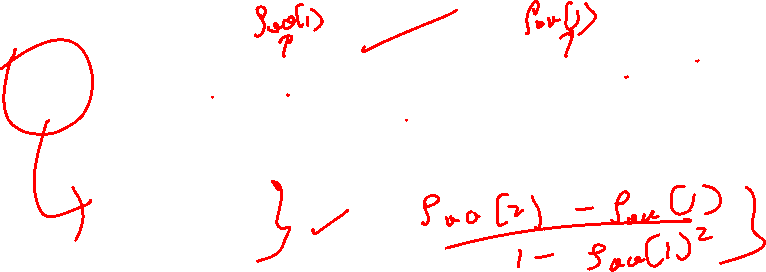 ρaa(1) ρaa(1)
} ✓ ρaa(2) - ρaa(1) }
1 - ρaa(1)²